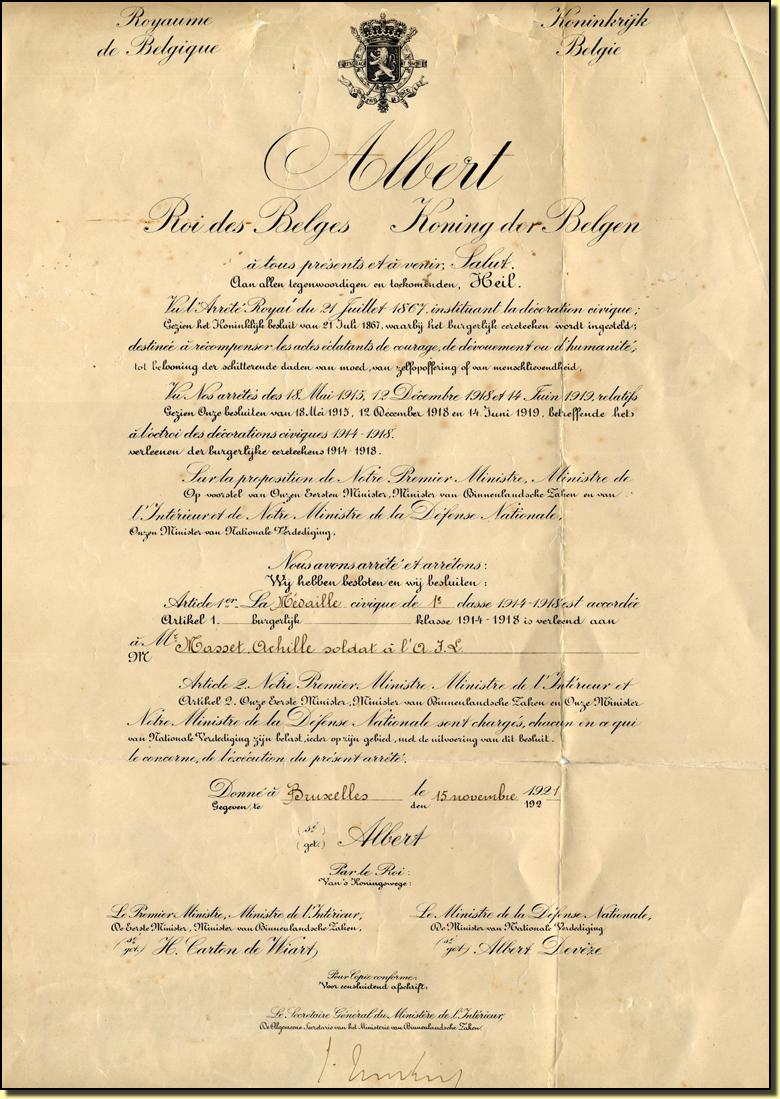 Royaume
de Belgique
Koninkrijk
Belgie
Albert
Roi des Belges Koning der Belgen
à tous présents et à venir, Salut.
Aan allen tegenwoordigen en toekomenden, Heil.
Vu l'Arrêté Royal du 21 Juillet 1867, instituant la décoration civique;
Gezien het Koninklijk besluit van 21 Juli 1867, waarbij het burgerlijk eereteeken wordt ingesteld;
destinée à récompenser les actes éclatants de courage, de dévouement ou d'humanité;
tot belooning der schitterende daden van moed, van zelfopoffering of van menschlievendheid,
Vu Nos arrêtés des 18 Mai 1915, 12 Décembre 1918 et 14 Juin 1919, relatifs
Gezien Onze besluiten van 18 Mei 1915, 12 December 1918 en 14 Juni 1919, betreffende het
à l'octroi des décorations civiques 1914-1918.
verleenen der burgerlijke eereteekens 1914-1918.
Sur la proposition de Notre Premier Ministre, Ministre de
Op voorstel van Onzen Eersten Minister, Minister van Binnenlandsche Zaken en van
l'Intérieur et de Notre Ministre de la Défense Nationale,
Onzen Minister van Nationale Verdediging,
Nous avons arrêté et arrêtons:
Wij hebben besloten en wij besluiten:
Article 1er. La Médaille civique de 1e classe 1914-1918 est accordée
Artikel 1. burgerlijk klasse 1914-1918 is verleend aan
à Mr Masset, Achille soldat à l'A.I.L.
M
Article 2. Notre Premier Ministre Ministre de l'Intérieur et
Artikel 2. Onze Eerste Minister, Minister van Binnenlandsche Zaken en Onze Minister
Notre Ministre de la Défense Nationale sont chargés, chacun en ce qui
van Nationale Verdediging zijn belast, ieder op zijn gebied, met de uitvoering van dit besluit.
le concerne, de l'éxécution du présent arrêté.
Donné à Bruxelles le 15 novembre 1921
Gegeven te den 192
(sé)
(get.) Albert
Par le Roi:
Van's Koningswege:
Le Premier Ministre, Ministre de l'Intérieur,
De Eerste Minister, Minister van Binnenlandsche Zaken,
(sé)
(get) H. Carton de Wiart
Le Ministre de la Défense Nationale,
De Minister van Nationale Verdediging
(sé)
(get) Albert Devèze
Pour Copie conforme:
Voor eensluidend afschrift:
Le Secrétaire Général du Ministère de l'Intérieur,
De Algemeene Secretaris van het Ministerie van Binnenlandsche Zaken.